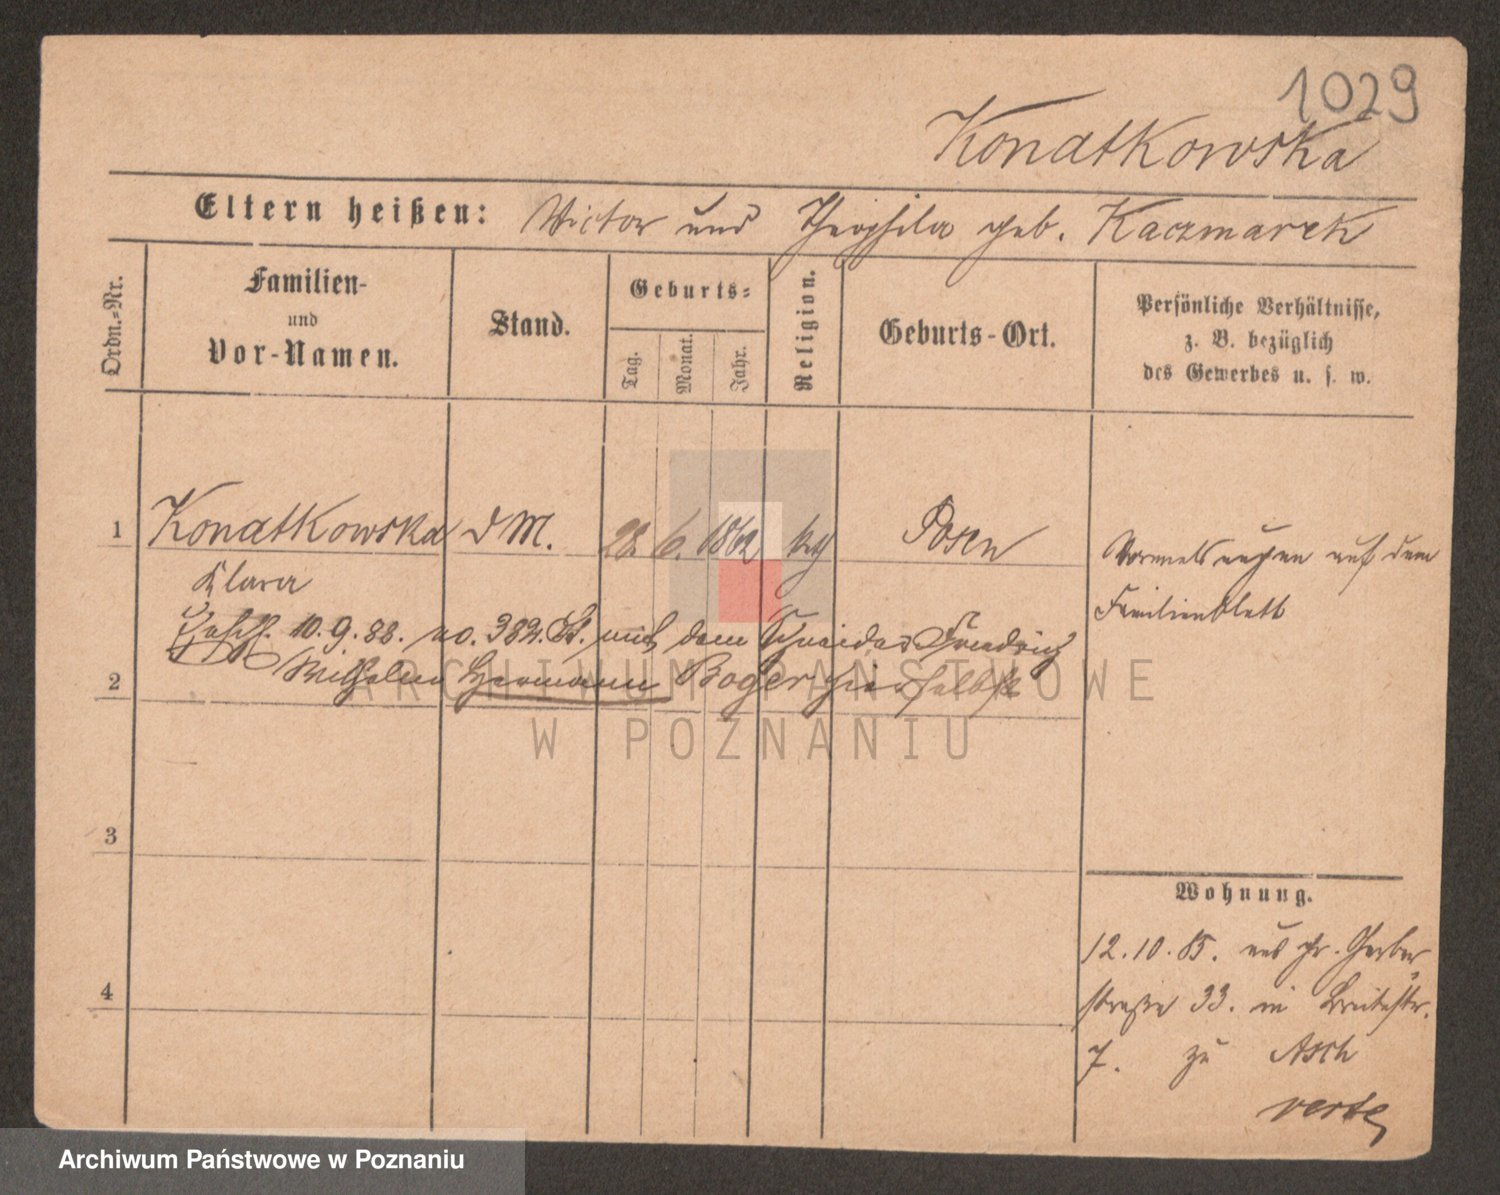 1029
Konatkowska
Eltern heißen: Victor und Theophila geb. Kaczmarek
Ordn.-Nr.
Familien-
und
Vor-Namen.
Stand.
Geburts-
Tag.
Monat.
Jahr.
Religion.
Geburts-Ort.
Persönliche Verhältnisse,
z. B. bezüglich
des Gewerbes u. s. w.
1 Konatkowska d M. 28. 6. 1862 kth Posen
Klara
Vermerkungen auf dem
Familienblatt
10. 9. 88. no. 382. mit dem Schneider Friedrich
2 Wilhelm Hermann Boger hierselbst
3
4
Wohnung.
12. 10. 85. aus gr. Gerber
straße 33. in Breitestr.
7. zu Asch
verte
ARCHIWUM PAŃSTWOWE
W POZNANIU
Archiwum Państwowe w Poznaniu